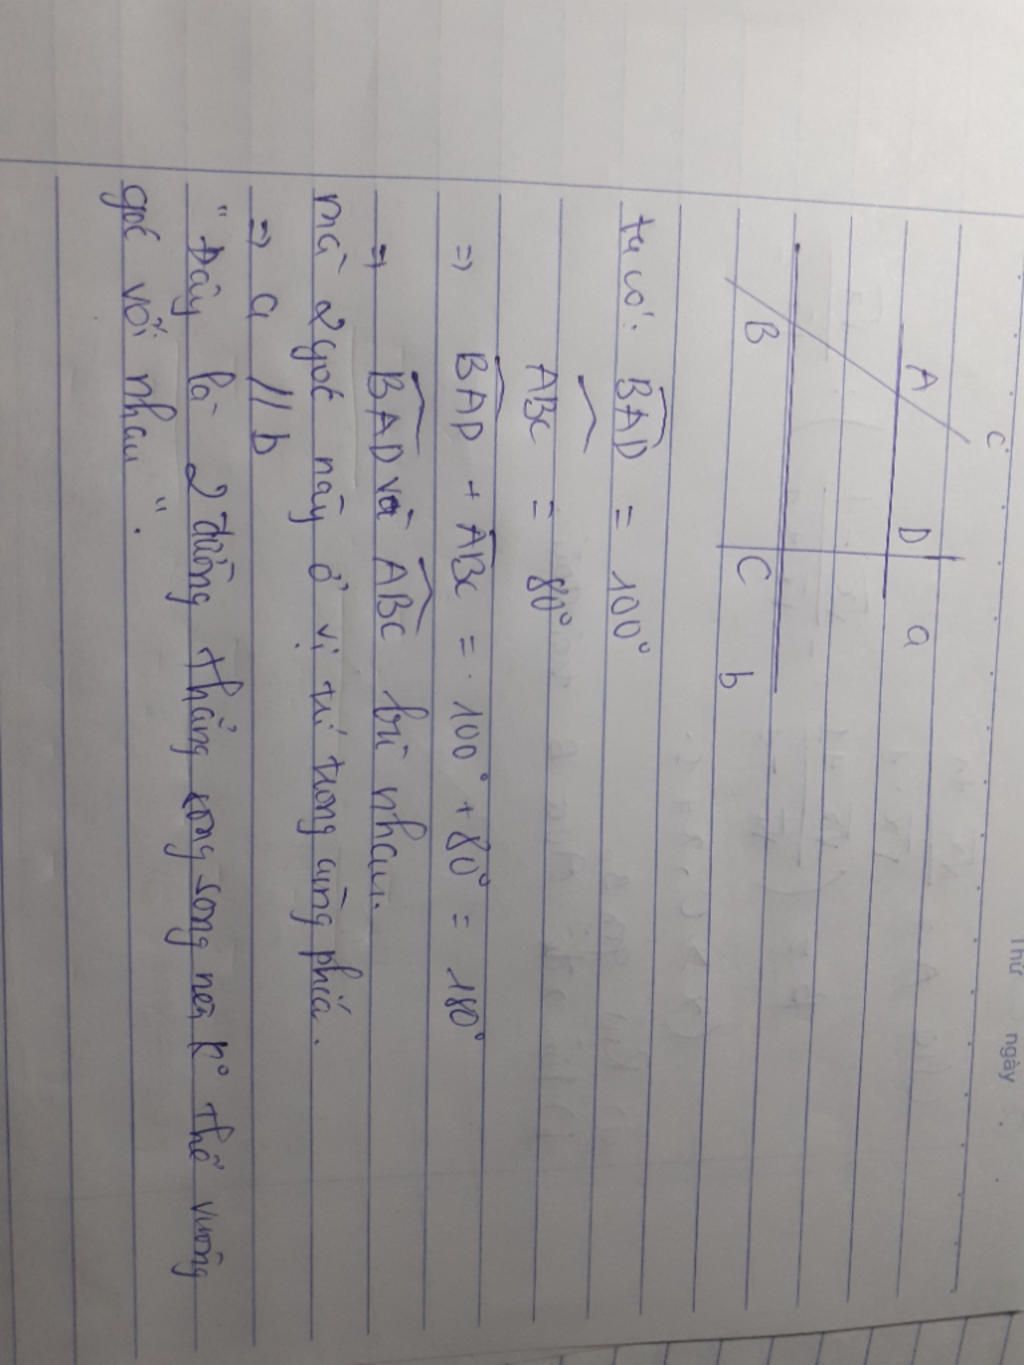 Thứ ngày
c
A D a
B C b
ta có: BAD = 100°
ABC = 80°
=> BAD + ABC = 100° + 80° = 180°
=> BAD và ABC bù nhau.
mà 2 góc này ở vị trí trong cùng phía.
=> a // b
"Đây là 2 đường thẳng song song nên k° thể vuông
góc với nhau".